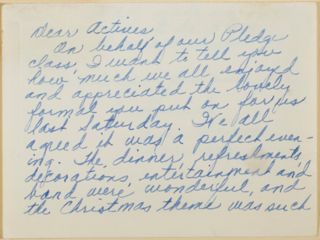 Dear Actives,
On behalf of our Pledge
class, I want to tell you
how much we all enjoyed
and appreciated the lovely
formal you put on for us
last Saturday. We all
agreed it was a perfect even-
ing. The dinner, refreshments,
decorations, entertainment and
band were wonderful, and
the Christmas theme was such